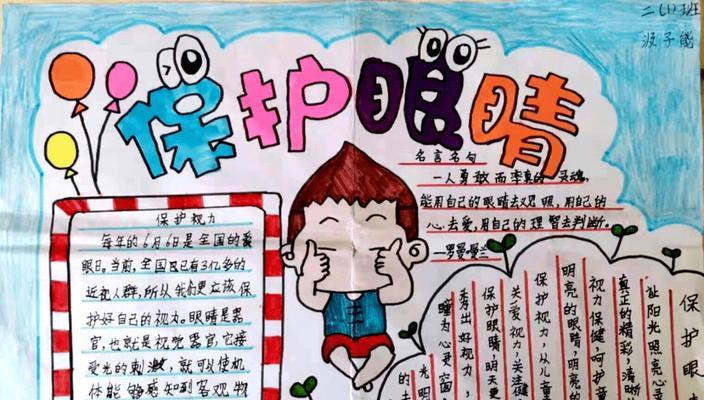 二(1)班
保护眼睛
名言名句
一人勇敢而率真的灵魂,
能用自己的眼睛去观照,用自己的
心去爱,用自己的理智去判断。
—罗曼曼兰
保护视力
每年的6月6日是全国的爱
眼日。当前,全国已有3亿多的
近视人群,所以我们更应该保
护好自己的视力。眼睛是器
官,也就是视觉器官,它接
受光的刺激,就可以使机
体能够感知到客观物
保护眼
让阳光照亮心
真正的精彩,清晰
视力保健呵护童
明亮的眼睛,明亮的
保护视力,从儿童
关爱视力,关注健
保护眼睛,明天更
秀出好视力,
瞳为心灵窗
光明
的